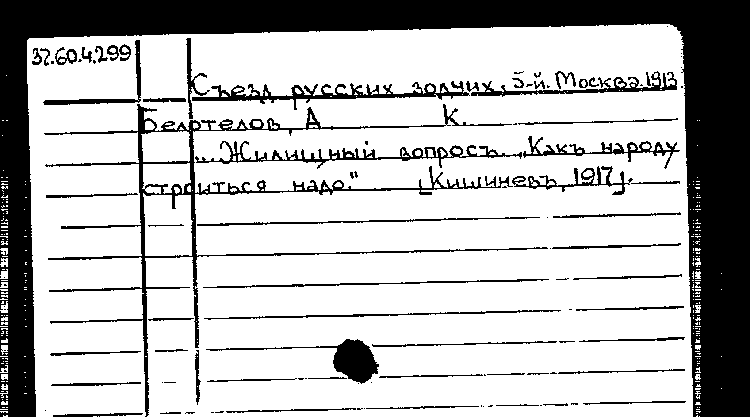 37.60.4.299
Съезд русских зодчих, 5-й. Москва 1913
Белотелов, А К.
„. Жилищный вопросъ. „Какъ народу
строиться надо." [Кишиневъ, 1917].